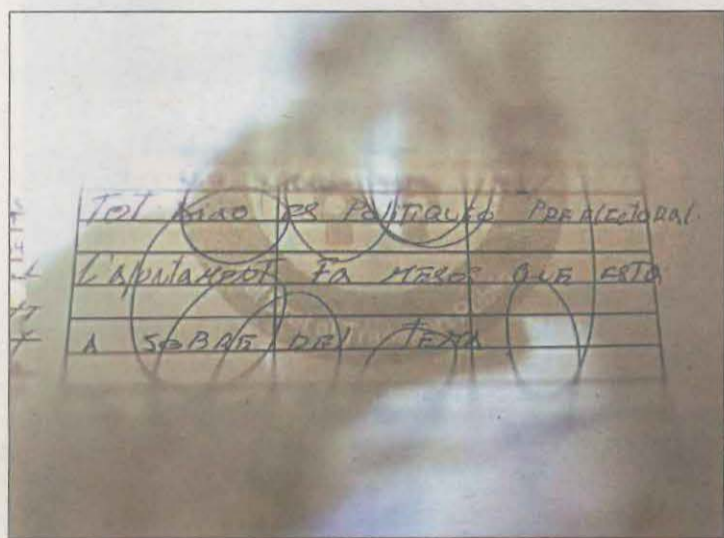 Tot això es Politiqueo PREELEctoral.
L'Ajuntament Fa MESOS QUE ESTA
A SOBRE DEL TEMA